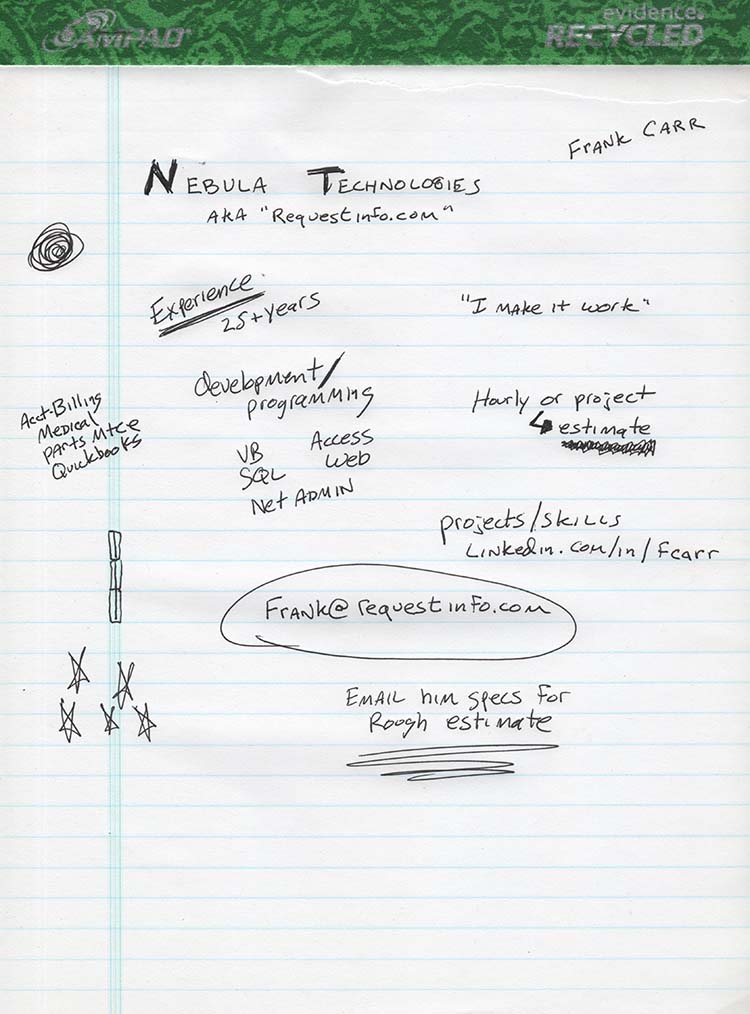 AMPAD
evidence
RECYCLED
Frank Carr
Nebula Technologies
AKA "Requestinfo.com"
Experience
25+ years
"I make it work"
development/
programming
Hourly or project
estimate
Acct-Billing
Medical
Parts Mtce
Quickbooks
VB Access
SQL Web
Net Admin
projects/skills
Linkedin.com/in/fcarr
Frank@requestinfo.com
Email him specs for
Rough estimate